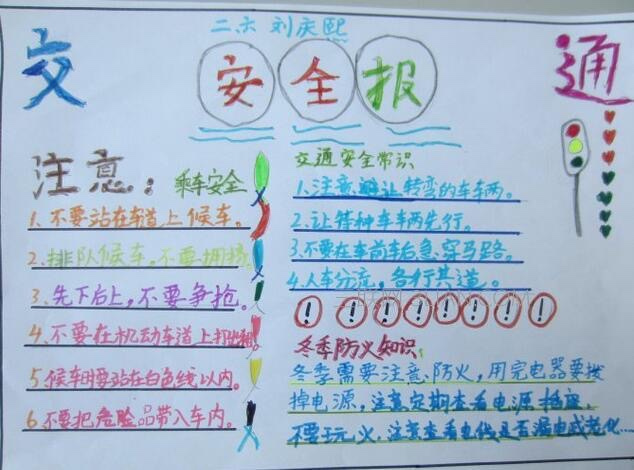 二六 刘庆熙
交 安全报 通
注意：乘车安全
1.不要站在车道上候车。
2.排队候车，不要拥挤。
3.先下后上，不要争抢。
4.不要在机动车道上打出租。
5.候车时要站在白色线以内。
6.不要把危险品带入车内。
交通安全常识
1.注意避让转弯的车车两。
2.让特种车车两先行。
3.不要在车前车后急穿马路。
4.人车分流，各行其道。
冬季防火知识：
冬季需要注意防火，用完电器要拨
掉电源，注意定期查看电源插座
不要玩火，注意查看电线是否漏电或老化……